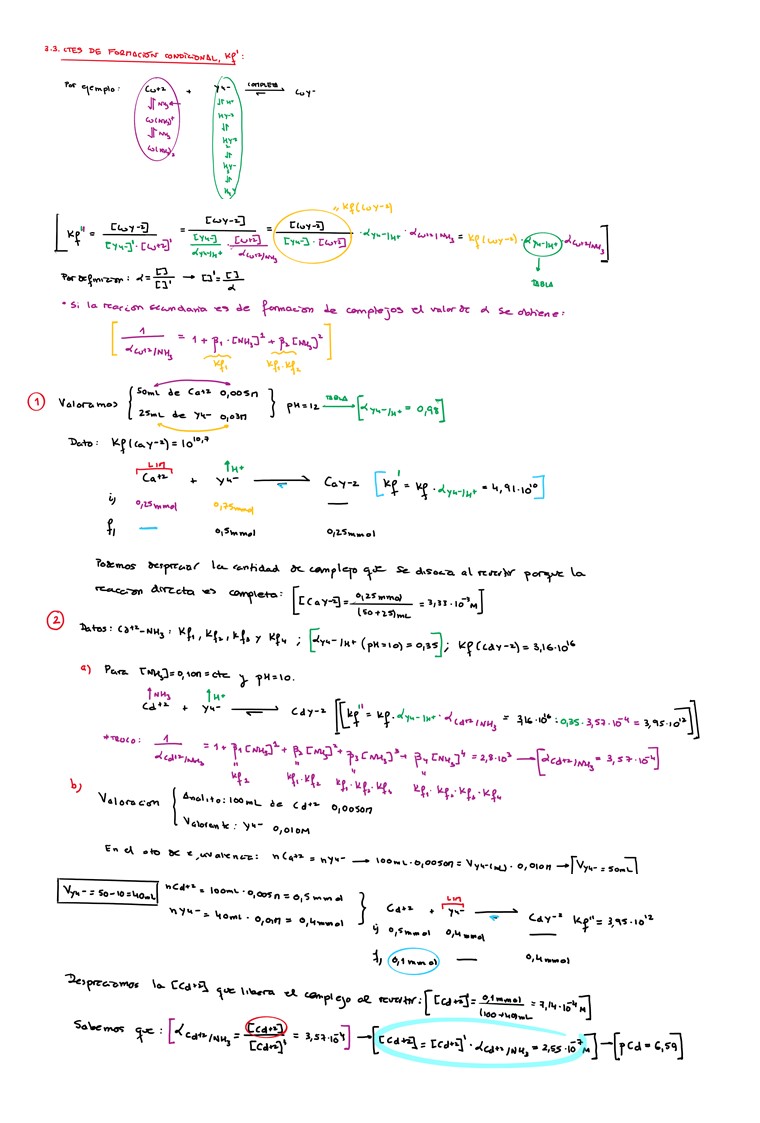 3.3. CTES DE FORMACIÓN CONDICIONAL, Kf':
Por ejemplo: Cu+2 + Y4- COMPLETA CuY-
⇵ NH3 ⇵ H+
Cu(NH3)+ HY-3
⇵ NH3 ⇵
Cu(NH3)2 HY-2
⇵
HY-
⇵
H4Y
"Kf(CuY-2)
[Kf'' = [CuY-2] / [Y4-]'·[Cu+2]' = [CuY-2] / ([Y4-]/αY4-/H+ · [Cu+2]/αCu+2/NH3) = [CuY-2] / [Y4-]·[Cu+2] · αY4-/H+ · αCu+2/NH3 = Kf(CuY-2) · αY4-/H+ · αCu+2/NH3]
TABLA
Por definición: α = [] / []' → []' = [] / α
• Si la reacción secundaria es de formación de complejos el valor de α se obtiene:
[1 / αCu+2/NH3 = 1 + β1·[NH3]1 + β2[NH3]2]
Kf1 Kf1·Kf2
① Valoramos { 50mL de Ca+2 0,005M
25mL de Y4- 0,03M } pH=12 TABLA → [αY4-/H+ = 0,98]
Dato: Kf(CaY-2)=10^10,7
LIM ↑H+
Ca+2 + Y4- ⇌ CaY-2 [Kf' = Kf·αY4-/H+ = 4,91·10^10]
i) 0,25mmol 0,75mmol —
f) — 0,5mmol 0,25mmol
Podemos despreciar la cantidad de complejo que se disocia al revertir porque la
reacción directa es completa: [[CaY-2] = 0,25 mmol / (50+25)mL = 3,33·10^-3 M]
② Datos: Cd+2-NH3: Kf1, Kf2, Kf3 y Kf4 ; [αY4-/H+ (pH=10) = 0,35] ; Kf(CdY-2) = 3,16·10^16
a) Para [NH3]=0,10M=cte y pH=10.
↑NH3 ↑H+
Cd+2 + Y4- ⇌ CdY-2 [[Kf'' = Kf·αY4-/H+·αCd+2/NH3 = 3,16·10^16·0,35·3,57·10^-4 = 3,95·10^12]]
*TRUCO: 1 / αCd+2/NH3 = 1 + β1[NH3]1 + β2[NH3]2 + β3[NH3]3 + β4[NH3]4 = 2,8·10^3 → [αCd+2/NH3 = 3,57·10^-4]
Kf1 Kf1·Kf2 Kf1·Kf2·Kf3 Kf1·Kf2·Kf3·Kf4
b)
Valoración { Analito: 100mL de Cd+2 0,0050M
Valorante: Y4- 0,010M
En el pto de equivalencia: nCd+2 = nY4- → 100mL·0,0050M = VY4-(mL)·0,010M → [VY4- = 50mL]
VY4- = 50-10 = 40mL nCd+2 = 100mL·0,005M = 0,5mmol
nY4- = 40mL·0,01M = 0,4mmol }
LIM
Cd+2 + Y4- ⇌ CdY-2 Kf'' = 3,95·10^12
i) 0,5mmol 0,4mmol —
f) 0,1mmol — 0,4mmol
Despreciamos la [Cd+2] que libera el complejo al revertir: [[Cd+2]' = 0,1mmol / (100+40)mL = 7,14·10^-4 M]
Sabemos que: [αCd+2/NH3 = [Cd+2] / [Cd+2]' = 3,57·10^-4] → [[Cd+2] = [Cd+2]'·αCd+2/NH3 = 2,55·10^-7 M] → [pCd = 6,59]